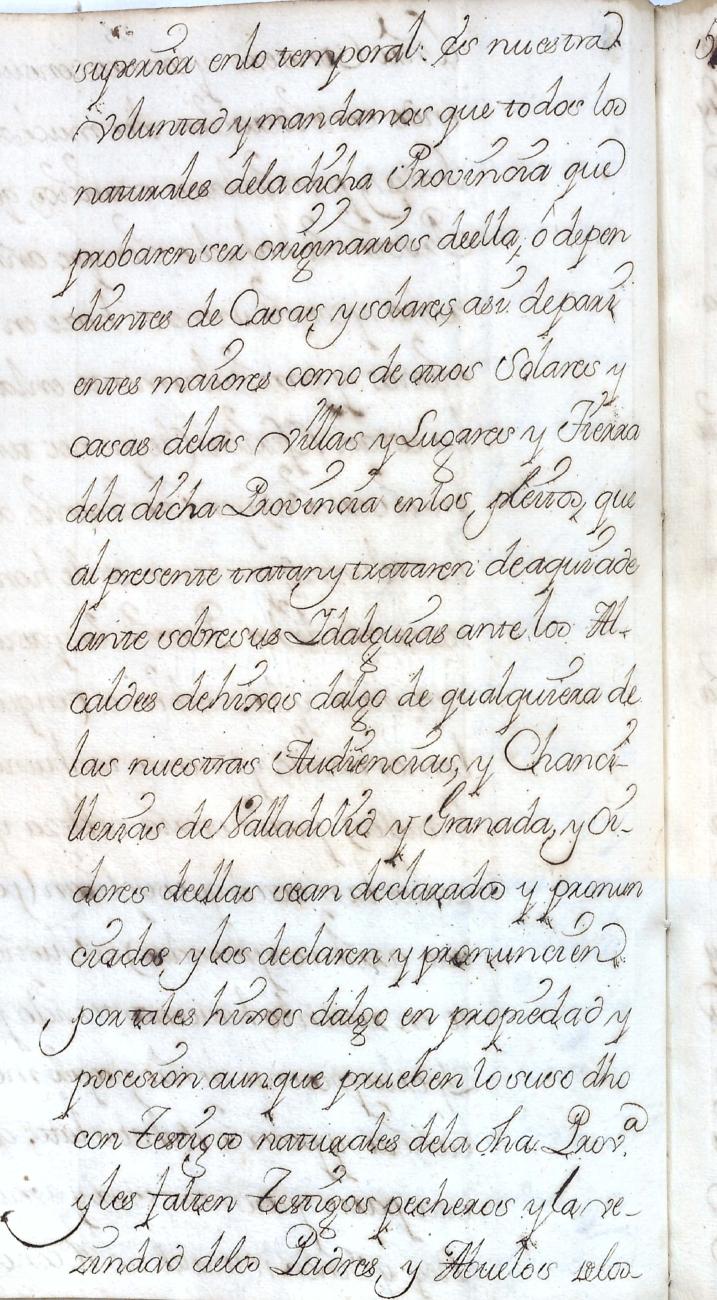 superior enlo temporal. És nuestra
voluntad y mandamos que todos los
naturales dela dicha Provincia que
probaren ser originarios deella, ó depen
dientes de Casas, y solares, asi de pari
entes maiores como de otros Solares y
casas delas Villas y Lugares y Tierra
dela dicha Provincia enlos pleitos, que
al presente tratan y trataren de aqui ade
lante sobre sus Idalguias ante los Al-
caldes de hixos dalgo de qualquiera de
las nuestras Audiencias, y Chanci-
llerias de Valladolid y Granada, y Oi-
dores deellas sean declarados y pronun
ciados, y los declaren y pronuncien
por tales hixos dalgo en propiedad y
posesion aunque prueben lo suso dho
con Testigos naturales dela dha. Prov.ª
y les falten Testigos pecheros y la ve-
zindad delos Padres, y Abuelos delos